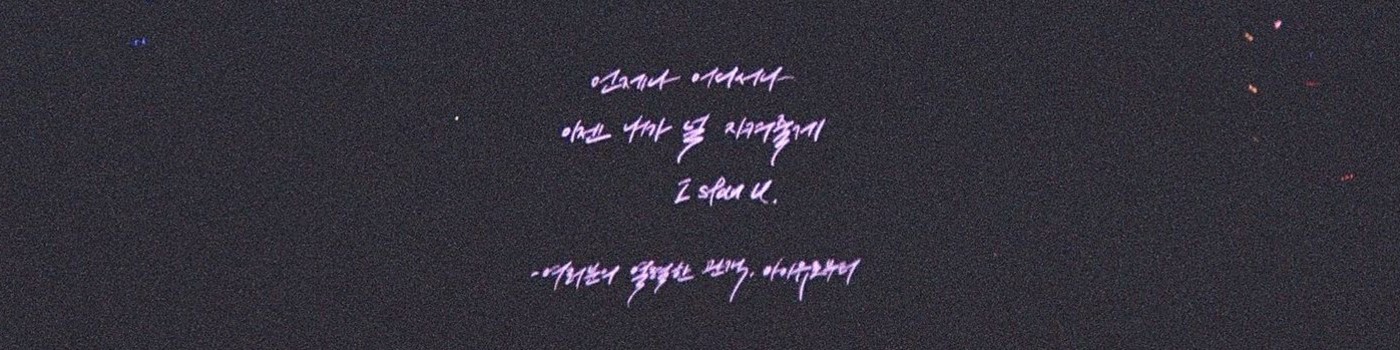 언제나 어디서나
이젠 내가 널 지켜줄게
I stan U.
-여러분의 열렬한 관객, 아이유로부터